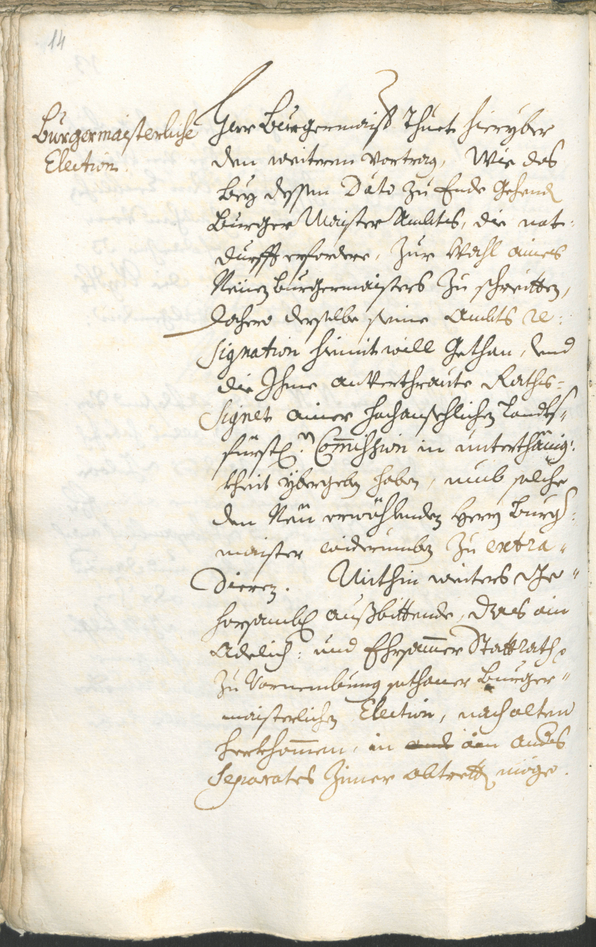 14
Burgermaisterliche
Election.
Herr Burgermaist. thuet hieryber
den weiteren Vortrag, Wie das
bey dessen Dato zu Ende gehend
Burger Maister Ambts, die not-
durfft erfordere, zur Wahl aines
Neuen Burgermaisters zu schreitten,
dahero derselbe seine Ambts re-
signation hiemit will gethan, und
die Ihme anverthraute Raths-
Signet ainer hochansehlichen Landts-
fürstl: Commission in unterthänig-
kheit ybergeben haben, umb solche
den Neu erwöhlenden Herrn Burger-
maister widerumben zu extra-
dieren. Mithin weiters Ge-
horsambl: außbittende, das ein
Adelich: und Ehrsammer Stattrath
zu Vornembung sothaner Burger-
maisterlichen Election, nach alten
herkhommen, in ain anders
Separates Zimer abtretten möge.